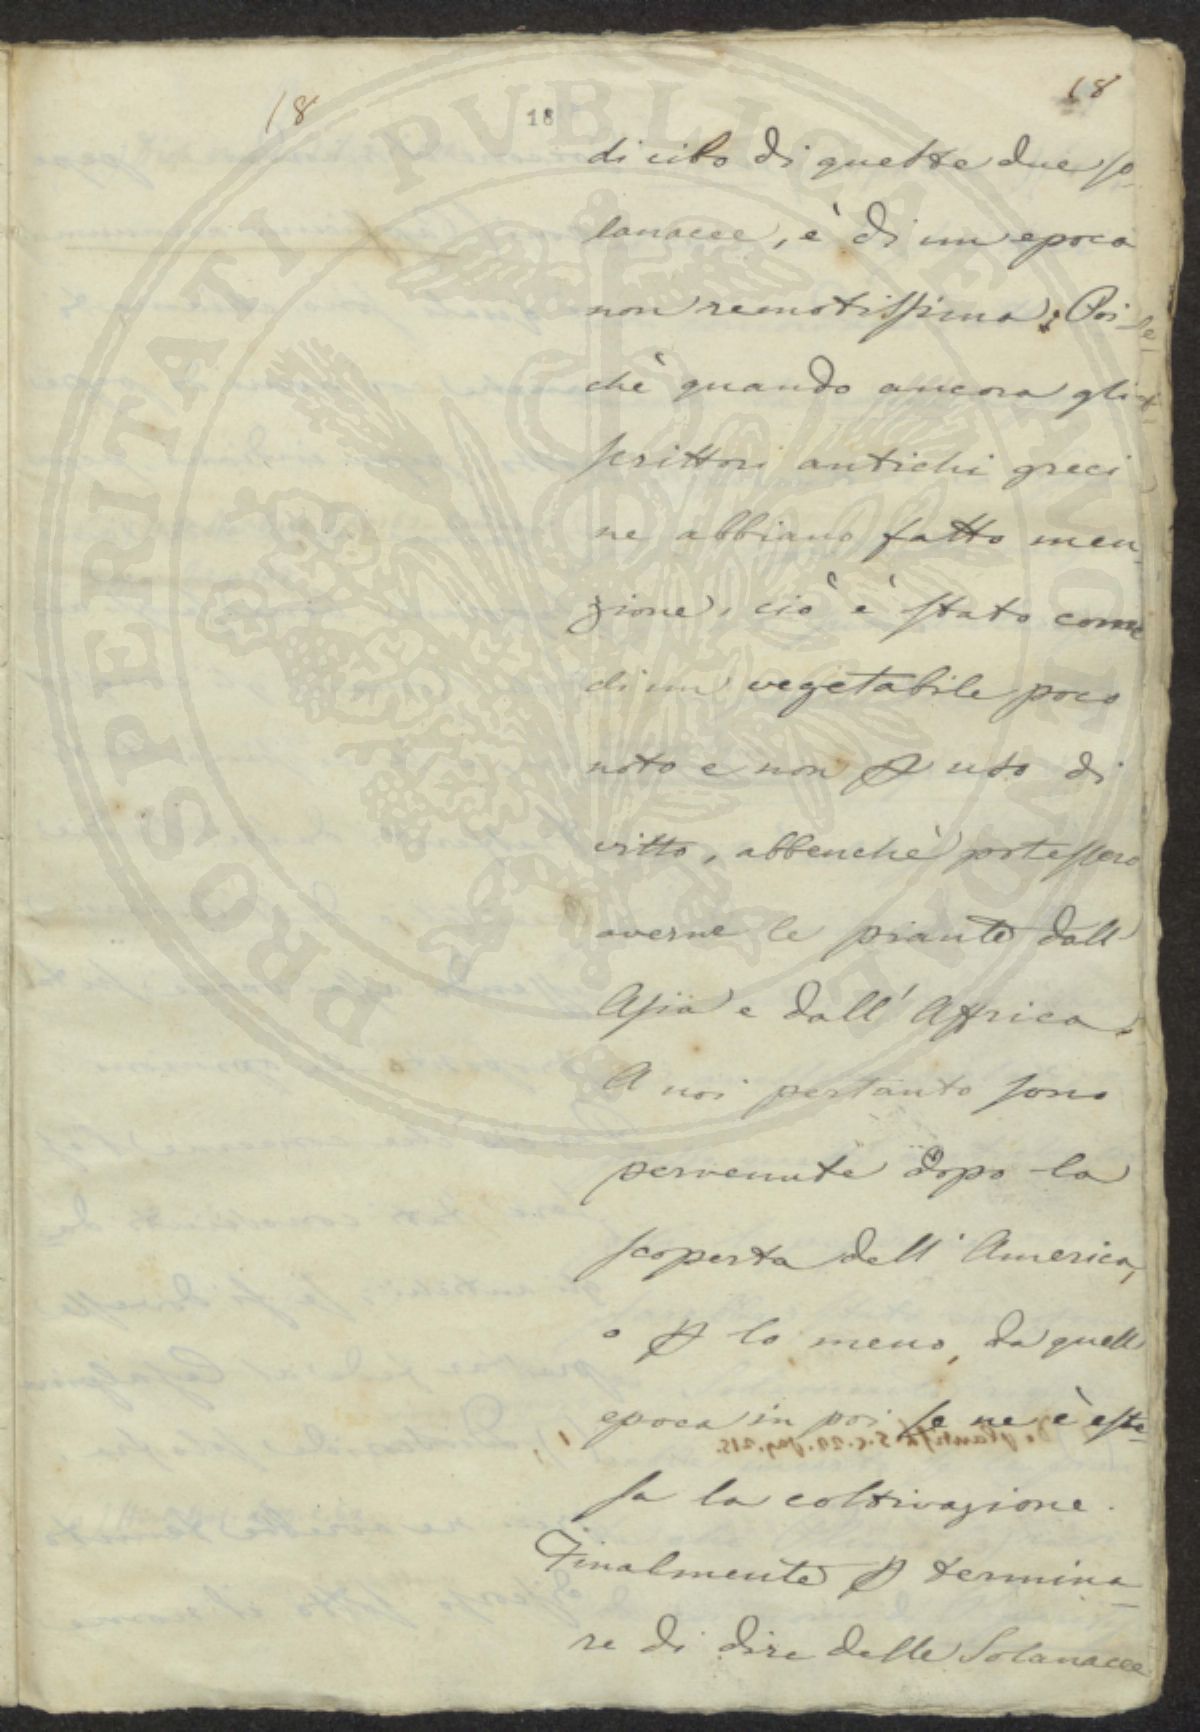 18
18
18
di cibo di queste due so-
lanacee, è di un epoca
non remotissima; Poi
chè quando ancora gli
scrittori antichi greci
ne abbiano fatto men-
zione, ciò è stato come
di un vegetabile poco
noto e non ꝑ uso di
vitto, abbenchè potessero
averne le piante dall'
Asia e dall' Affrica.
A noi pertanto sono
pervenute dopo la
scoperta dell' America,
o ꝑ lo meno, da quell'
epoca in poi se ne è este-
sa la coltivazione.
Finalmente ꝑ termina-
re di dire delle Solanacee
PROSPERITATI PVBLICAE AVGENDAE